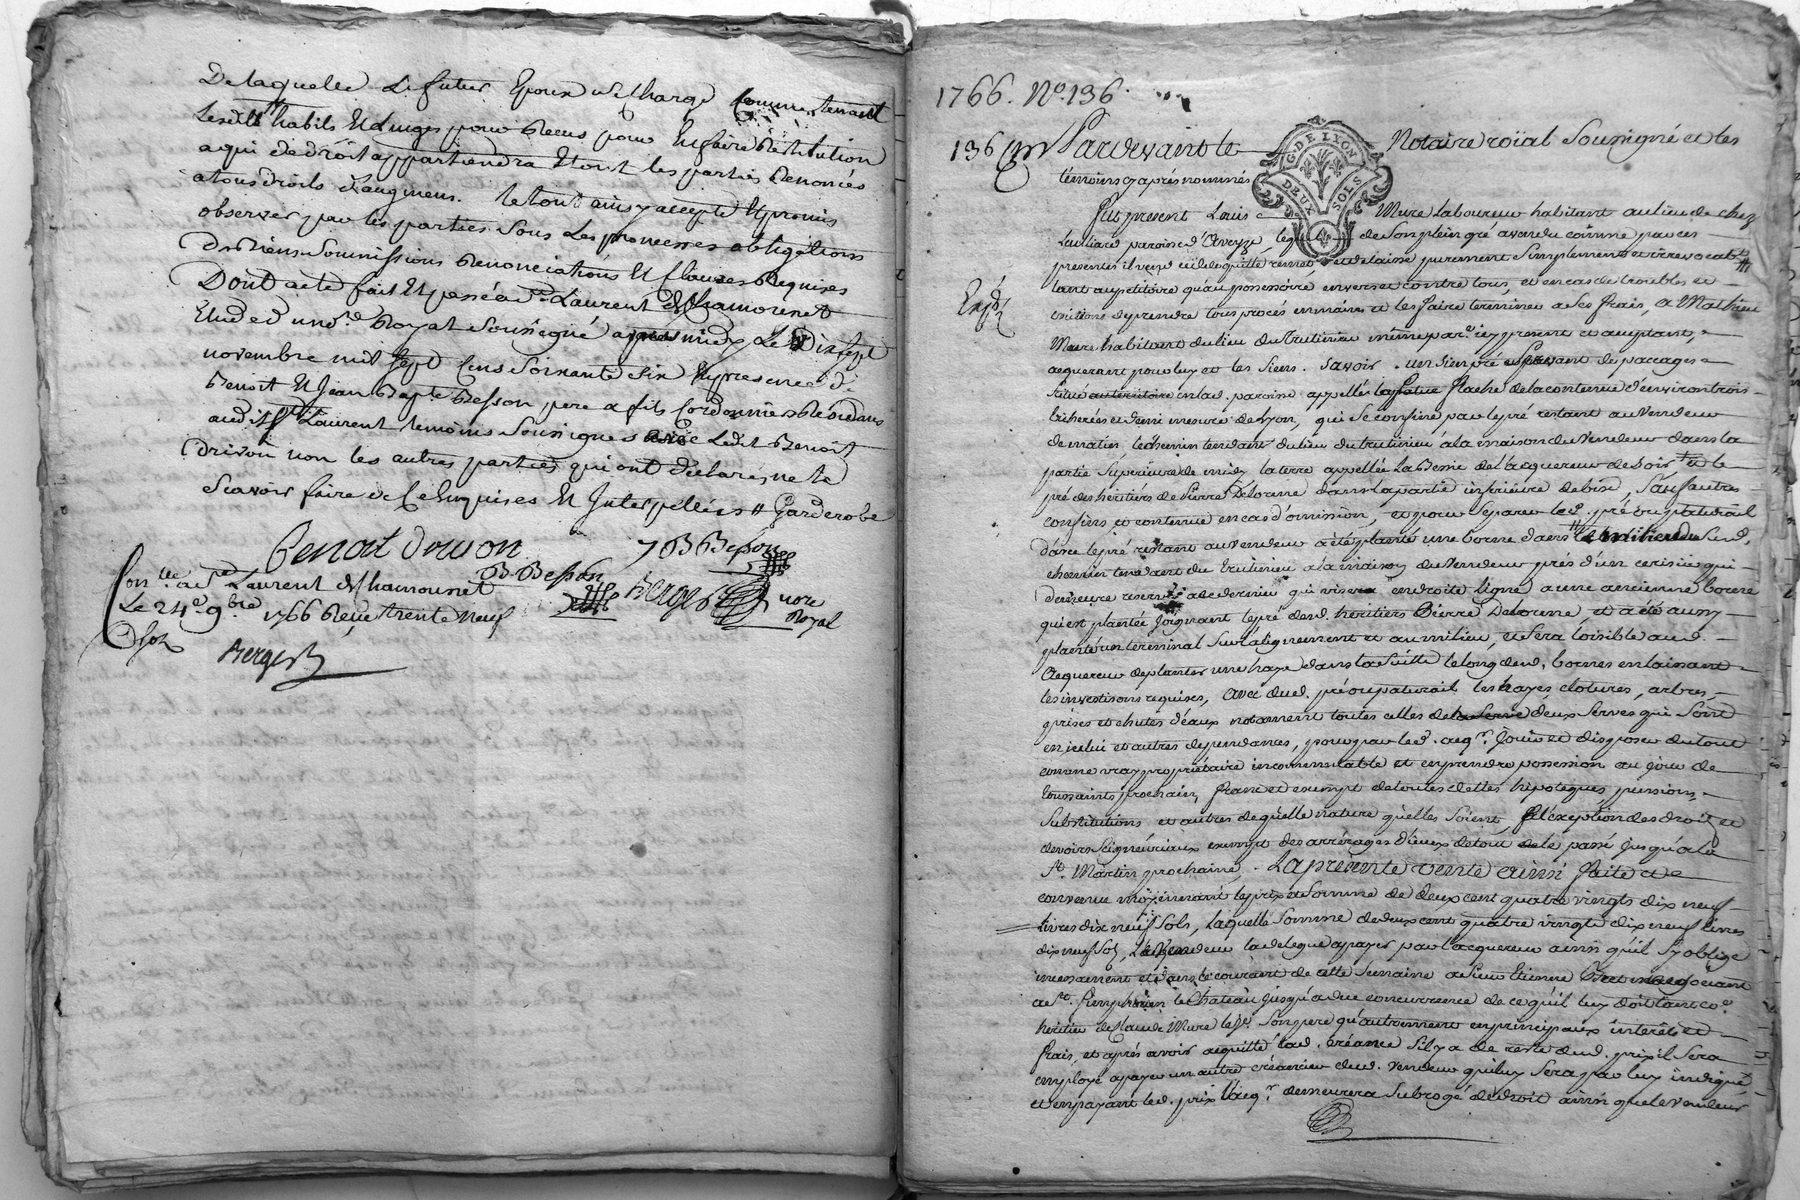 De laquelle le futur Epoux se Charge Comme tenant
lesdits habits Et Linges pour Recus pour En faire Restitution
a qui de droit appartiendra Et tout les parties Renoncés
a tous droits d'augmens. le tout ainsy accepté Et promis
observer par les parties sous Les promesses obligations
Soumissions Renonciations Et Clauses Requises
Dont acte fait Et passé a St Laurent de Chamousset
Etude du no.re Royal soussigné apres midy Le Dixsept
novembre mil sept Cens soixante six En presence de
Benoit Et Jean Bapte Besson, pere a fils Cordonniers Residans
audit St Laurent temoins soussignes avec Ledit Benoit
non les autres parties qui ont déclarés ne le
scavoir faire de Ce Enquises Et Interpellées # Garderobe
Benoit J B Besson
Con.lle a St Laurent de Chamousset B. Besson Berger nore
Le 24e 9bre 1766 Reçu trente neuf Royal
sols
Berger
1766. No. 136.
136 Pardevant le Notaire roïal soussigné et les
G. DE LYON
DEUX SOLS
témoins cy après nommés
Fut present Louis Mure Laboureur habitant au lieu de chez
paroisse d'Aveyze, lequel de son plein gré a vendu comme par ces
presentes il vend cède quitte remet, et delaisse purement simplement et irrevocablt
tant au petitoire qu'au possessoire envers et contre tous, et en cas de troubles et
Expé
évictions de prendre tous procés en mains et les faire terminer a ses frais, a Mathieu
Mure habitant du lieu du trulinieu même par.e icy present et acceptant,
acquereur pour luy et les siens. savoir. un sien pré servant de paccages
situé en lad. paroisse appellé la flache de la contenue d'environ trois
bicherées et demi mesure de Lyon, qui se confine par le pré restant au vendeur
de matin, le chemin tendant du lieu du trulinieu a la maison du vendeur dans la
partie superieure de midy la terre appellée La de l'acquereur de soir et le
pré des heritiers de Pierre Delorme dans la partie inferieure de bise, sauf autres
confins et contenue en cas d'omission, et pour separer led. pré ou paturail
d'avec le pré restant au vendeur a été planté une borne dans le susd.
chemin tendant du trulinieu a la maison du vendeur près d'un cerisier qui
demeure reservé a ce dernier qui visera en droite ligne a une ancienne borne
qui est plantée joignant le pré desd. heritiers Pierre Delorme, et a été aussy
planté un terminal sur l'alignement et au milieu, et sera loisible aud.
acquereur de planter une haye dans la suitte le long desd. bornes en laissant
les investisons requises, avec dud. pré ou paturail les hayes, clotures, arbres,
prises et chutes d'eaux notament toutes celles de deux serves qui sont
en icelui et autres dependances, pour par led. acqr jouir et disposer du tout
comme vray propriétaire incommutable et en prendre possession au jour de
toussaints prochain, franc et exempt de toutes dettes hipoteques, pensions,
substitutions et autres de quelle nature quelles soient, à l'éxception des droits et
devoirs seigneuriaux exempt des arrérages d'iceux de tout le passé jusqu'a la
St. Martin prochaine. La presente vente ainsi faite et
convenue moyennant le prix et somme de deux cent quatre vingts dix neuf
livres dix neuf sols, laquelle somme de deux cent quatre vingts dix neuf livres
dix neuf sols, le vendeur la delegue a payer par l'acquereur ainsi qu'il s'y oblige
incessament et dans le courant de cette semaine a sieur Etienne
a St. Simphorien le Chateau jusqu'a due concurrence de ce qu'il luy doit tant coe
heritier de Claude Mure son pere qu'autrement en principaux interêts et
frais, et après avoir acquitté lad. créance s'il y a de reste dud. prix il sera
employé a payer un autre créancier dud. vendeur qui luy sera par luy indiqué
et en payant led. prix l'acqr. demeurera subrogé de droit ainsi que le vendeur